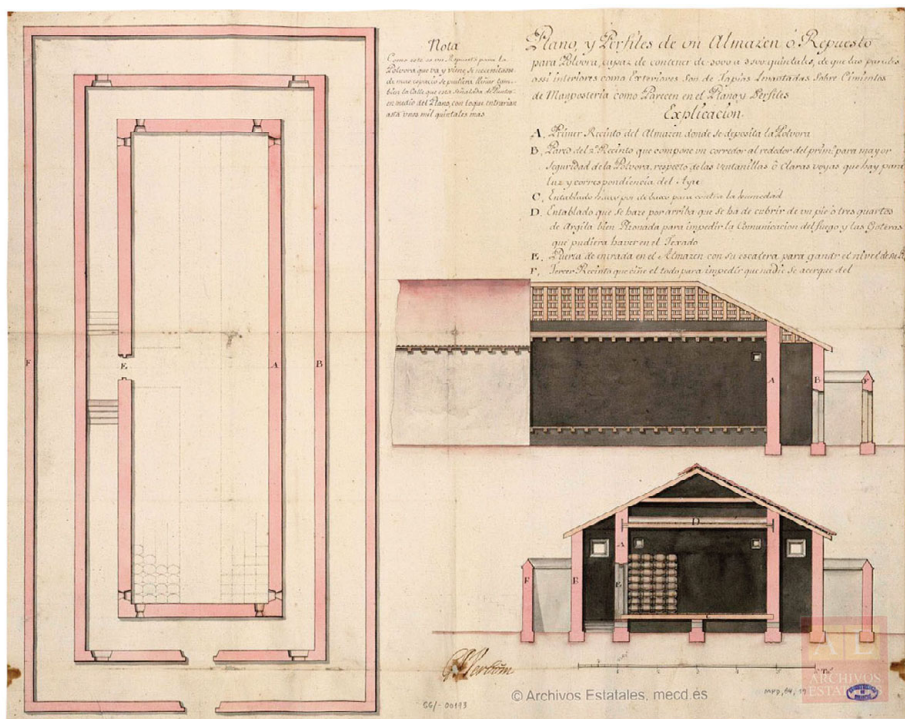 Nota
Como este es un Repuesto para la
Polvora, que va y viene, si necesitase
de mas espacio se pudiera llenar tam-
bien la Calle que esta señalada de Puntos
en medio del Plano, con lo que entrarian
mil quintales mas
Plano, y Perfiles de un Almazen ô Repuesto
para Polvora, capaz de contener de 3000 a quintales, de que las paredes
assi interiores como Exteriores, son de Tapias Sobre Cimientos
de Mamposteria como Parecen en el Plano y Perfiles
Explicacion
A. Primer Recinto del Almazen donde se deposita la Polvora
B. Pared del 2º Recinto que compone un corredor al rededor del prim.º para mayor
Seguridad de la Polvora, respecto de las Ventanillas ô Claras voyas que hay para
luz y correspondiencia del Ayre
C. Entablado hueco por de baxo para contra la humedad
D. Entablado que se haze por arriba que se ha de cubrir de un pie ô tres quartos
de Argila bien Pizonada para impedir la Comunicacion del fuego y las Goteras
que pudiera haver en el Texado
E. Puerta de entrada en el Almazen con su escalera, para ganar el nivel de
F. Tercer Recinto que ciñe el todo para impedir que nadie se acerque del
F
E
A
B
A
B
F
D
A
F
B
E
© Archivos Estatales, mecd.es
AE
ARCHIVOS
ESTATALES